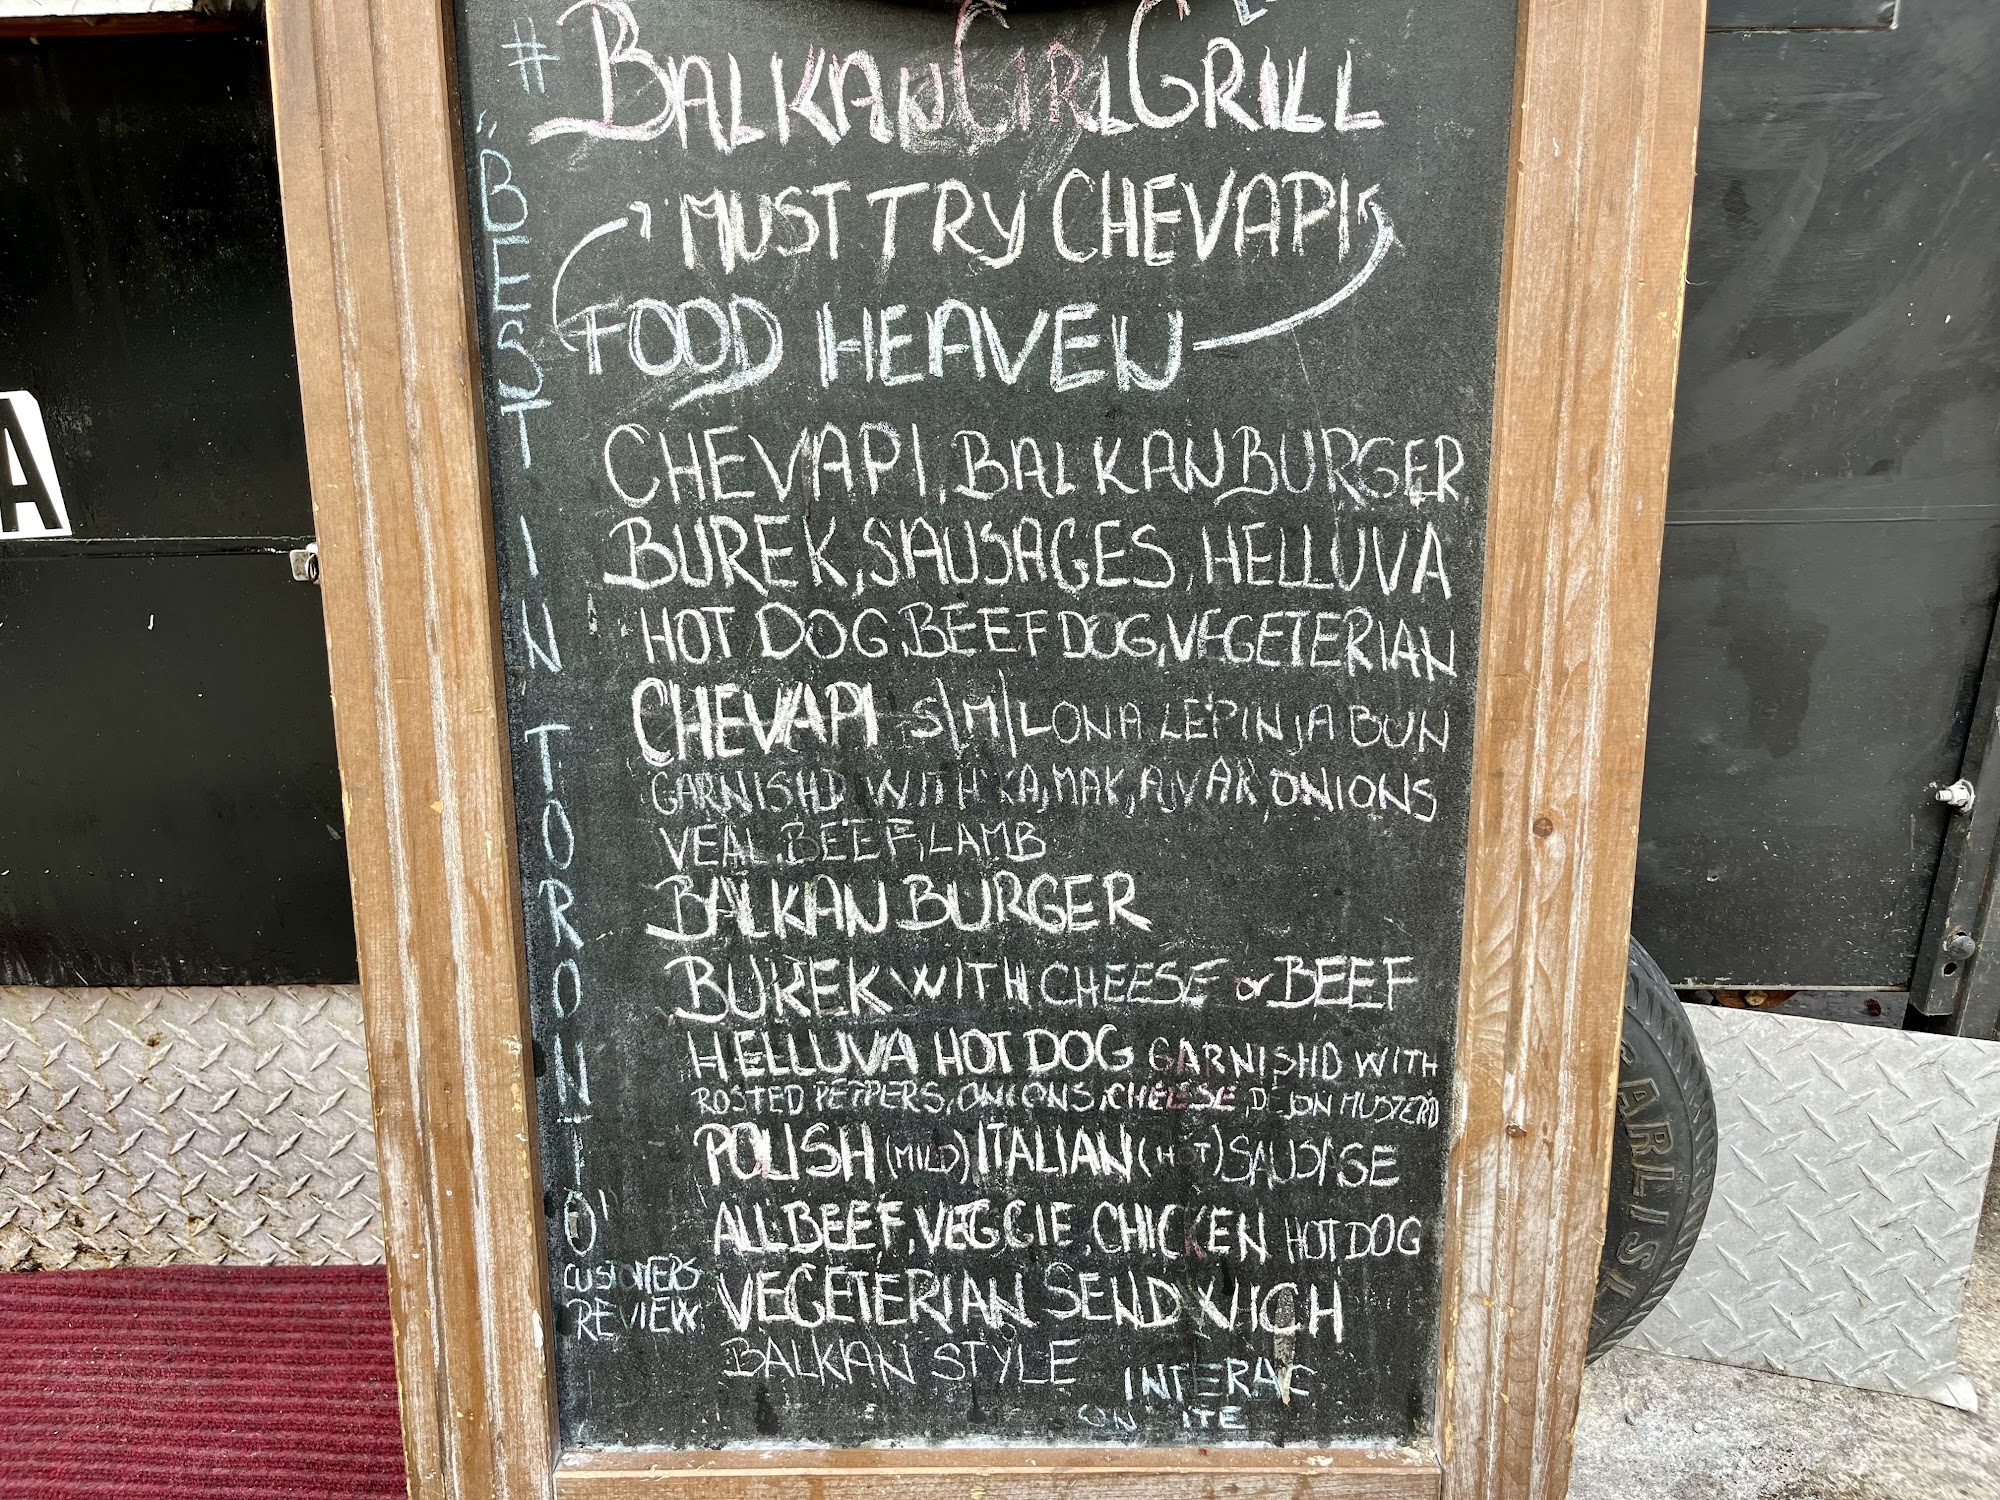 BALKAN GIRL GRILL
MUST TRY CHEVAPI
FOOD HEAVEN
CHEVAPI, BALKAN BURGER,
BUREK, SAUSAGES, HELLUVA
HOT DOG, BEEF DOG, VEGETERIAN
CHEVAPI S|M|L ON A LEPINJA BUN
GARNISHD WITH KAJMAK, AJVAR, ONIONS
VEAL, BEEF, LAMB
BALKAN BURGER
BUREK WITH CHEESE or BEEF
HELLUVA HOT DOG GARNISHD WITH
ROSTED PEPPERS, ONIONS, CHEESE, DEJON MUSTERD
POLISH (MILD) ITALIAN (HOT) SAUSAGE
ALL BEEF, VEGGIE, CHICKEN HOT DOG
VEGETERIAN SENDWICH
BALKAN STYLE
INTERAC
ON SITE
# "BEST IN TORONTO"
CUSTOMERS
REVIEW
A
CARLISL